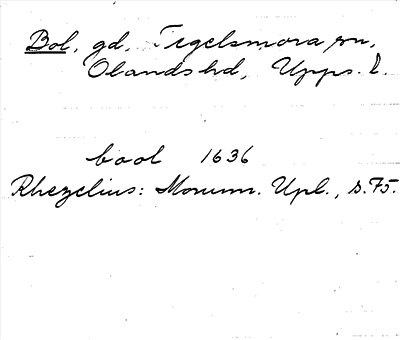 Bol, gd, Tegelsmora sn,
Olands hd, Upps. l.
bool 1636
Rhezelius: Monum. Upl., s. 75.